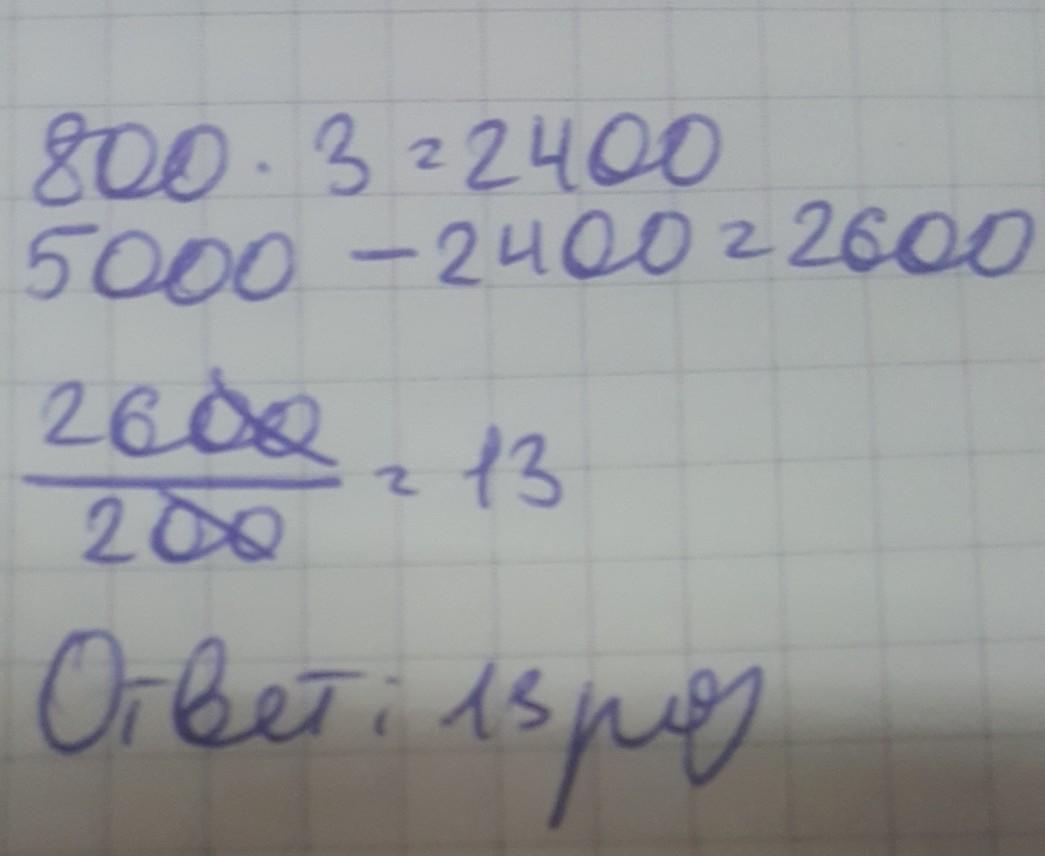 800 · 3 = 2400
5000 - 2400 = 2600
2600
200
= 13
Ответ: 13 роз